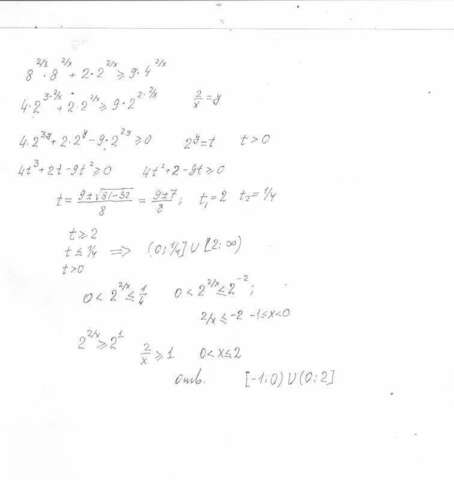 8^{2/3} · 8^{2/x} + 2·2^{2/x} ≥ 9·4^{2/x}
4·2^{3·2/x} + 2·2^{2/x} ≥ 9·2^{2·2/x}   2/x = y
4·2^{3y} + 2·2^y − 9·2^{2y} ≥ 0   2^y = t   t > 0
4t³ + 2t − 9t² ≥ 0   4t² + 2 − 9t ≥ 0
t = (9 ± √(81−32))/8 = (9±7)/8 ;   t₁ = 2   t₂ = 1/4
t ≥ 2
t ≤ 1/4   ⟹   (0; 1/4] ∪ [2; ∞)
t > 0
0 < 2^{2/x} ≤ 1/4   0 < 2^{2/x} ≤ 2^{−2} ;
2/x ≤ −2   −1 ≤ x < 0
2^{2/x} ≥ 2^1
2/x ≥ 1   0 < x ≤ 2
отв.   [−1; 0) ∪ (0; 2]